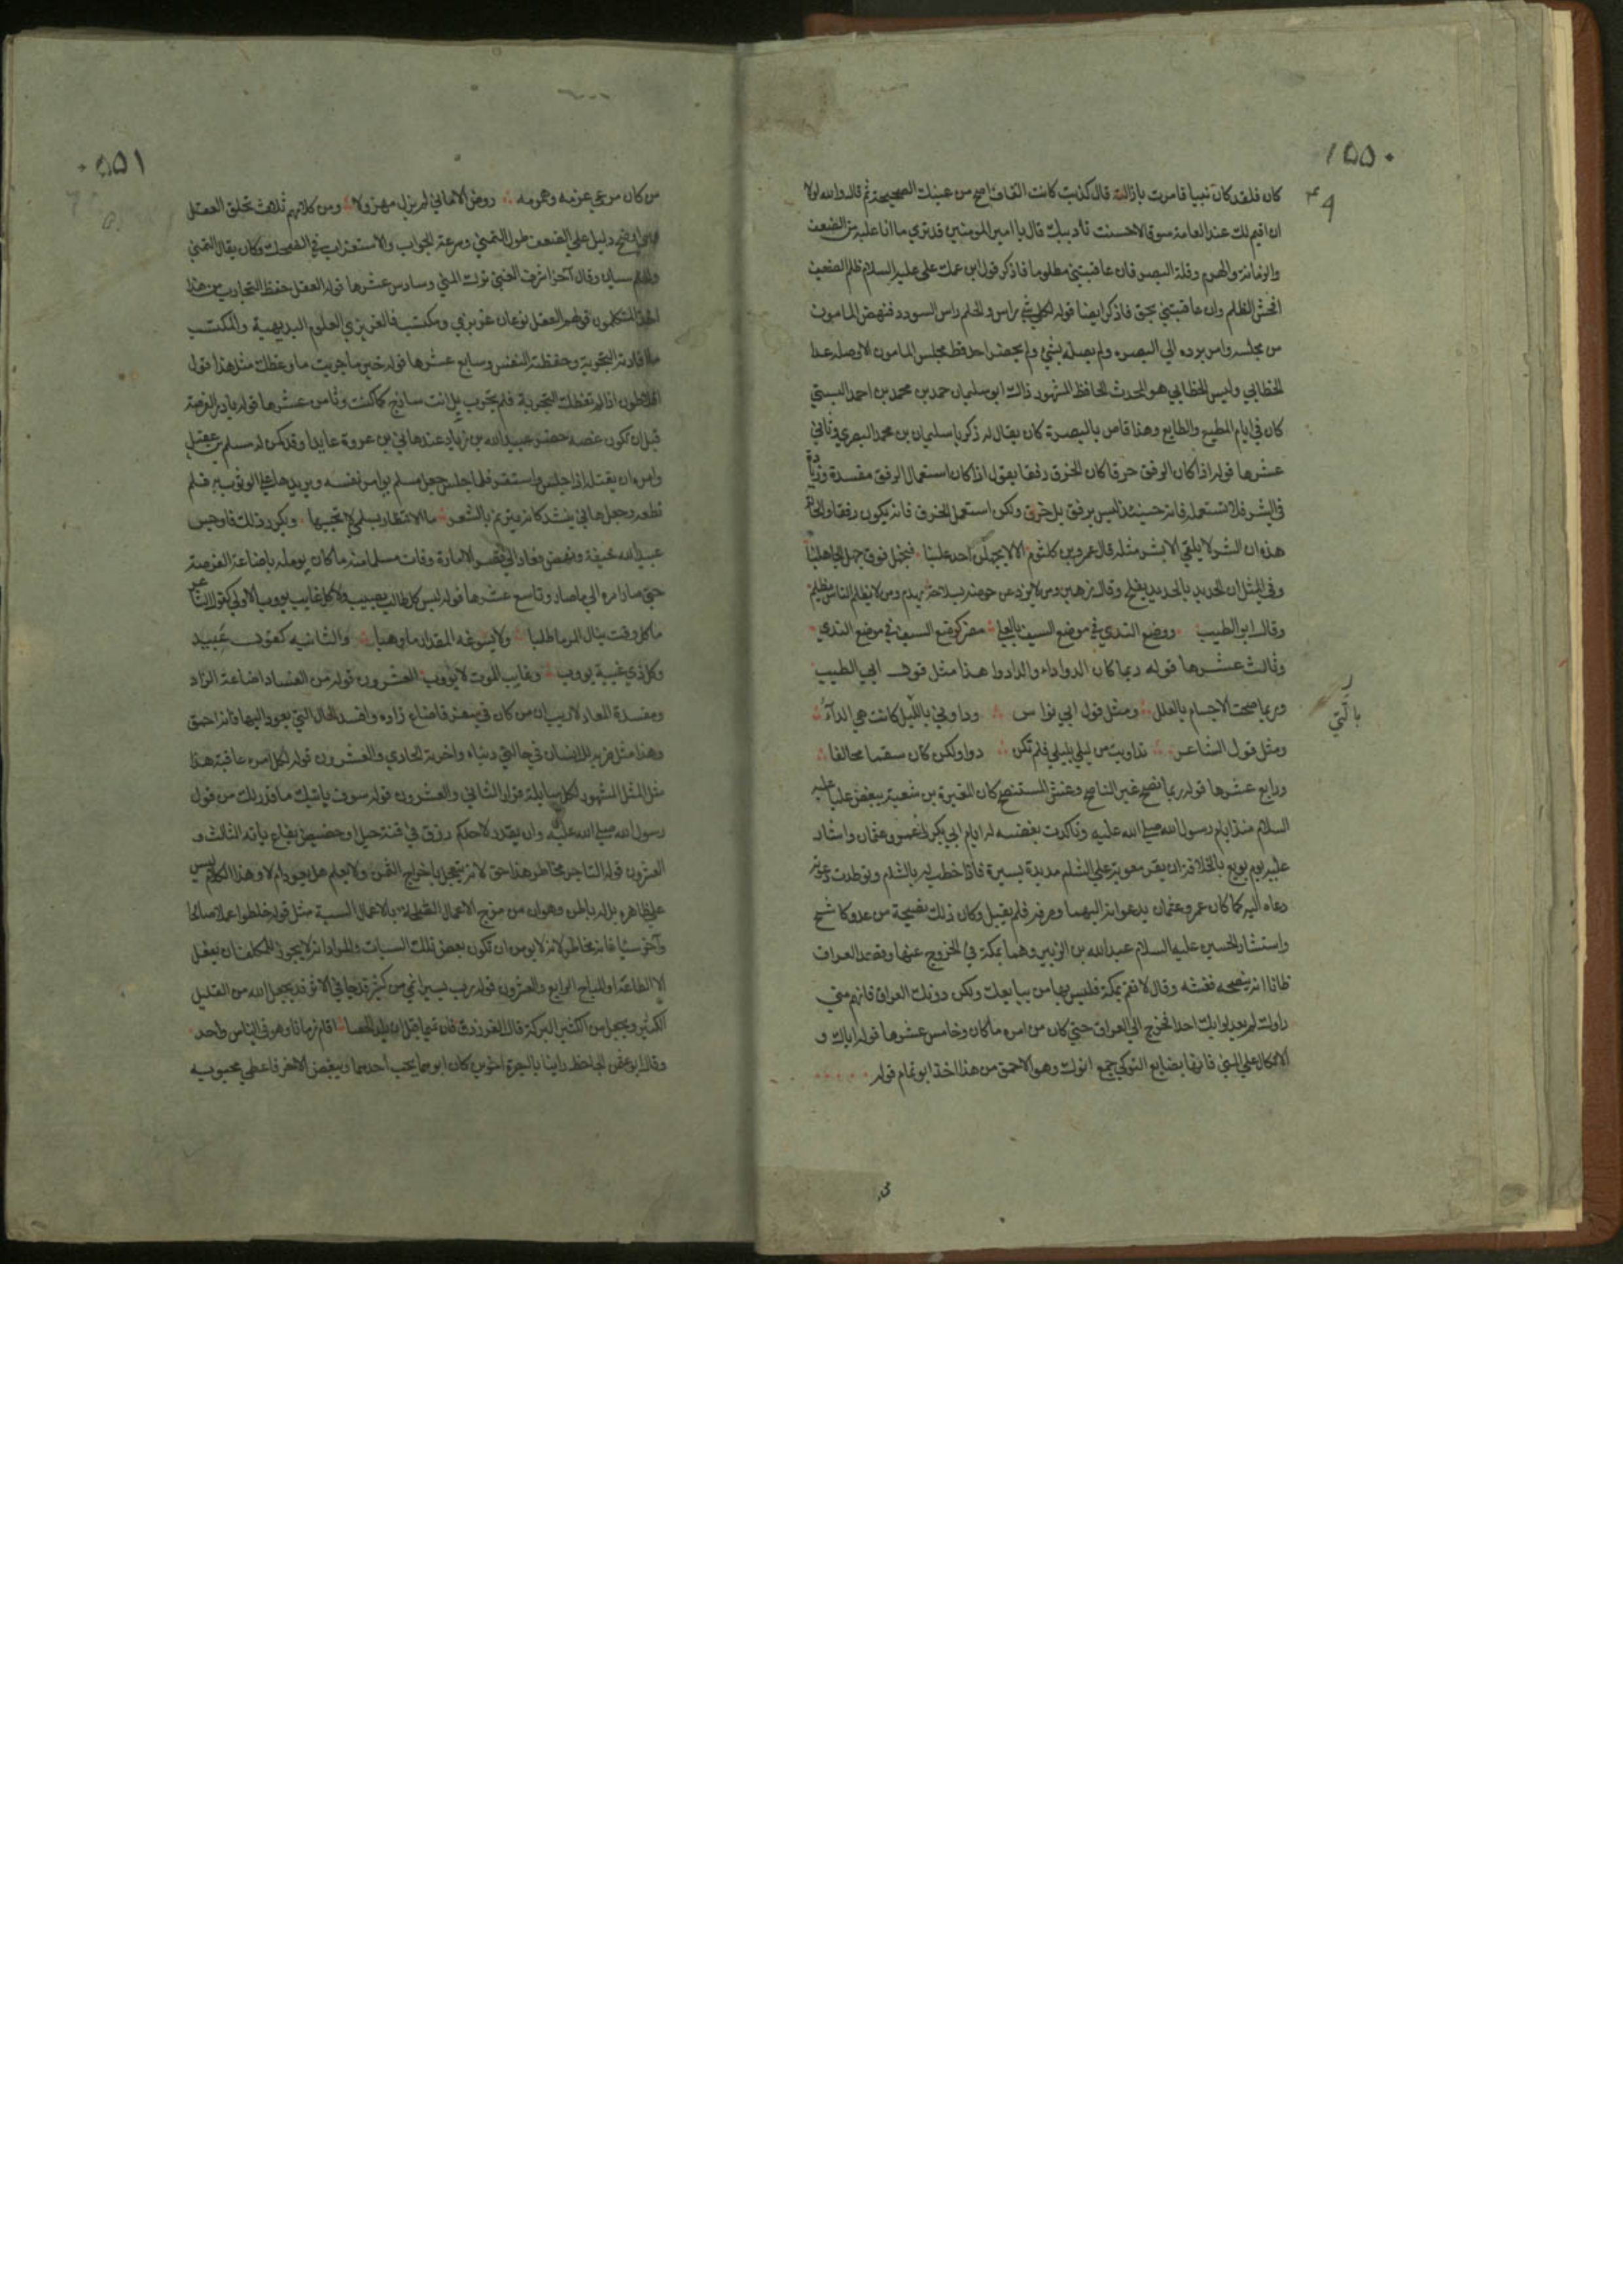 ١٥٥٠
كان فلقد كان نبيا فامرت بازالته قال كذبت كانت القاف اصح من عينك الصحيحة ثم قال والله لولا
ان اقيم لك عند العامة سوقا لاحسنت تأديبك قال يا امير المومنين قد ترى ما انا عليه من الضعف
والزمانة والهرم وقلة البصر فان عاقبتني مظلوما فاذكر قول ابن عمك علي عليه السلام ظلم الضعيف
افحش الظلم وان عاقبتني بحق فاذكر ايضا قوله لكل شي راس والحلم راس السودد فنهض المامون
من مجلسه وامر برده الي البصره ولم يصله بشي ولم يحضر احد قط مجلس المامون الا وصله عدا
الخطابي وليس الخطابي هو المحدث الحافظ المشهور ذاك ابو سليمان حمد بن محمد بن احمد البستي
كان في ايام المطيع والطايع وهذا قاص بالبصرة كان يقال له ذكريا سليمان بن محمد البصري وثاني
عشرها قوله اذا كان الرفق خرقا كان الخرق رفقا يقول اذا كان استعمال الرفق مفسدة وزيادة
في الشر فلا تستعمله فانه حينئذ ليس برفق بل خرق ولكن استعمل الخرق فانه يكون رفقا والحالة
هذه ان الشر لا يلقي الا بشر مثله قال عمرو بن كلثوم الا لا يجهلن احد علينا فنجهل فوق جهل الجاهلينا
وفي المثل ان الحديد بالحديد يفلح وقال زهير ومن لا يذد عن حوضه بسلاحه يهدم ومن لا يظلم الناس يظلم
وقال ابو الطيب ووضع الندي في موضع السيف بالعلي مضر كوضع السيف في موضع الندي
وثالث عشرها قوله ربما كان الدوا داء والدا دوا هذا مثل قول ابي الطيب
ر
بالتي
وربما صحت الاجسام بالعلل ومثل قول ابي نواس وداوني بالتي كانت هي الداء
ومثل قول الشاعر تداويت من ليلي بليلي فلم تكن دوا ولكن كان سقما مخالفا
ورابع عشرها قوله ربما نصح غير الناصح وغش المستنصح كان المغيرة بن شعبة يبغض عليا عليه
السلام منذ ايام رسول الله صلي الله عليه وتاكدت بغضته له ايام ابي بكر وعمر وعثمان واشار
عليه يوم بويع بالخلافة ان يقر معوية علي الشام مديدة يسيرة فاذا خطب له بالشام وتوطدت دعوته
دعاه اليه كما كان عمر وعثمان يدعوانه اليهما وصرفه فلم يقبل وكان ذلك نصيحة من عدو كاشح
واستشار الحسين عليه السلام عبد الله بن الزبير وهما بمكة في الخروج عنها وقصد العراف
ظانا انه ينصحه فغشه وقال لا تقم بمكة فليس بها من يبايعك ولكن دونك العراق فانهم متي
راوك لم يعدلوا بك احدا فخرج الي العراق حتي كان من امره ما كان وخامس عشرها قوله اياك و
الاتكال علي المني فانها بضايع النوكي جمع انوك وهو الاحمق من هذا اخذ ابو تمام قوله
٥٥١
من كان مرعي عزمه وهمومه روض الاماني لم يزل مهزولا ومن كلامهم ثلاث تخلق العقل
دليل علي الضعف طول التمني وسرعة الجواب والاستغراب في الضحك وكان يقال التمني
والحلم سيان وقال آخر اشرف الغني ترك المني وسادس عشرها قوله العقل حفظ التجارب من هذا
اخذ المتكلمون قولهم العقل نوعان غريزي ومكتسب فالغريزي العلوم البديهية والمكتسب
ما افادته التجربة وحفظته النفس وسابع عشرها قوله خير ما جربت ما وعظك مثل هذا قول
افلاطون اذا لم تعظك التجربة فلم تجرب بل انت ساذج كما كنت وثامن عشرها قوله بادر الفرصة
قبل ان تكون غصة حضر عبيد الله بن زياد عند هاني بن عروة عايدا وقد كمن له مسلم بن عقيل
وامره ان يقتله اذا جلس واستقر فلما جلس جعل مسلم يوامر نفسه ويريدها علي الوثوب به فلم
تطعه وجعل هاني ينشد كانه يترنم بالشعر ما الانتظار بسلمي لا تحييها ويكرر ذلك فاوجس
عبيد الله خيفة ونهض وعاد الي قصر الامارة وفات مسلما منه ما كان يومله باضاعة الفرصة
حتي صار امره الي ما صار وتاسع عشرها قوله ليس كل طالب يصيب ولا كل غايب يووب الاولي كقول الشاعر
ما كل وقت ينال المرء ما طلبا ولا يسوغه المقدار ما وهبا والثانيه كقول عبيد
وكل ذي غيبة يووب وغايب الموت لا يؤوب العشرون قوله من الفساد اضاعة الزاد
ومفسدة المعاد لا ريب ان من كان في سفر فاضاع زاده وافسد الحال التي يعود اليها فانه احمق
وهذا مثل ضربه للانسان في حالتي دنياه واخرته الحادي والعشرون قوله لكل امر عاقبة هذا
مثل المثل المشهور لكل سايلة قرار الثاني والعشرون قوله سوف ياتيك ما قدر لك من قول
رسول الله صلي الله عليه وان يقدر لاحدكم رزق في قنة جبل او حضيض بقاع ياته الثالث و
العشرون قوله التاجر مخاطر هذا حق لانه يتعجل باخراج الثمن ولا يعلم هل يعود ام لا وهذا الكلام ليس
علي ظاهره بل له باطن وهو ان من مزج الاعمال الصالحة بالاعمال السيية مثل قوله خلطوا عملا صالحا
وآخر سيا فانه مخاطر لانه لا يومن ان تكون بعض تلك السيات والمراد انه لا يجوز للمكلف ان يفعل
الا الطاعة او المباح الرابع والعشرون قوله رب يسير انمي من كثير قد جا في الاثر قد يجعل الله من القليل
الكثير ويجعل من الكثير البركة قال الفرزدق فان تميما قبل ان يلد الحصا اقام زمانا وهو في الناس واحد
وقال ابو عثمن الجاحظ راينا بالبصرة اخوين كان ابوهما يحب احدهما ويبغض الاخر فاعطي محبوبه